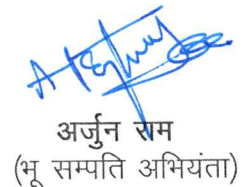 अर्जुन राम
(भू सम्पति अभियंता)